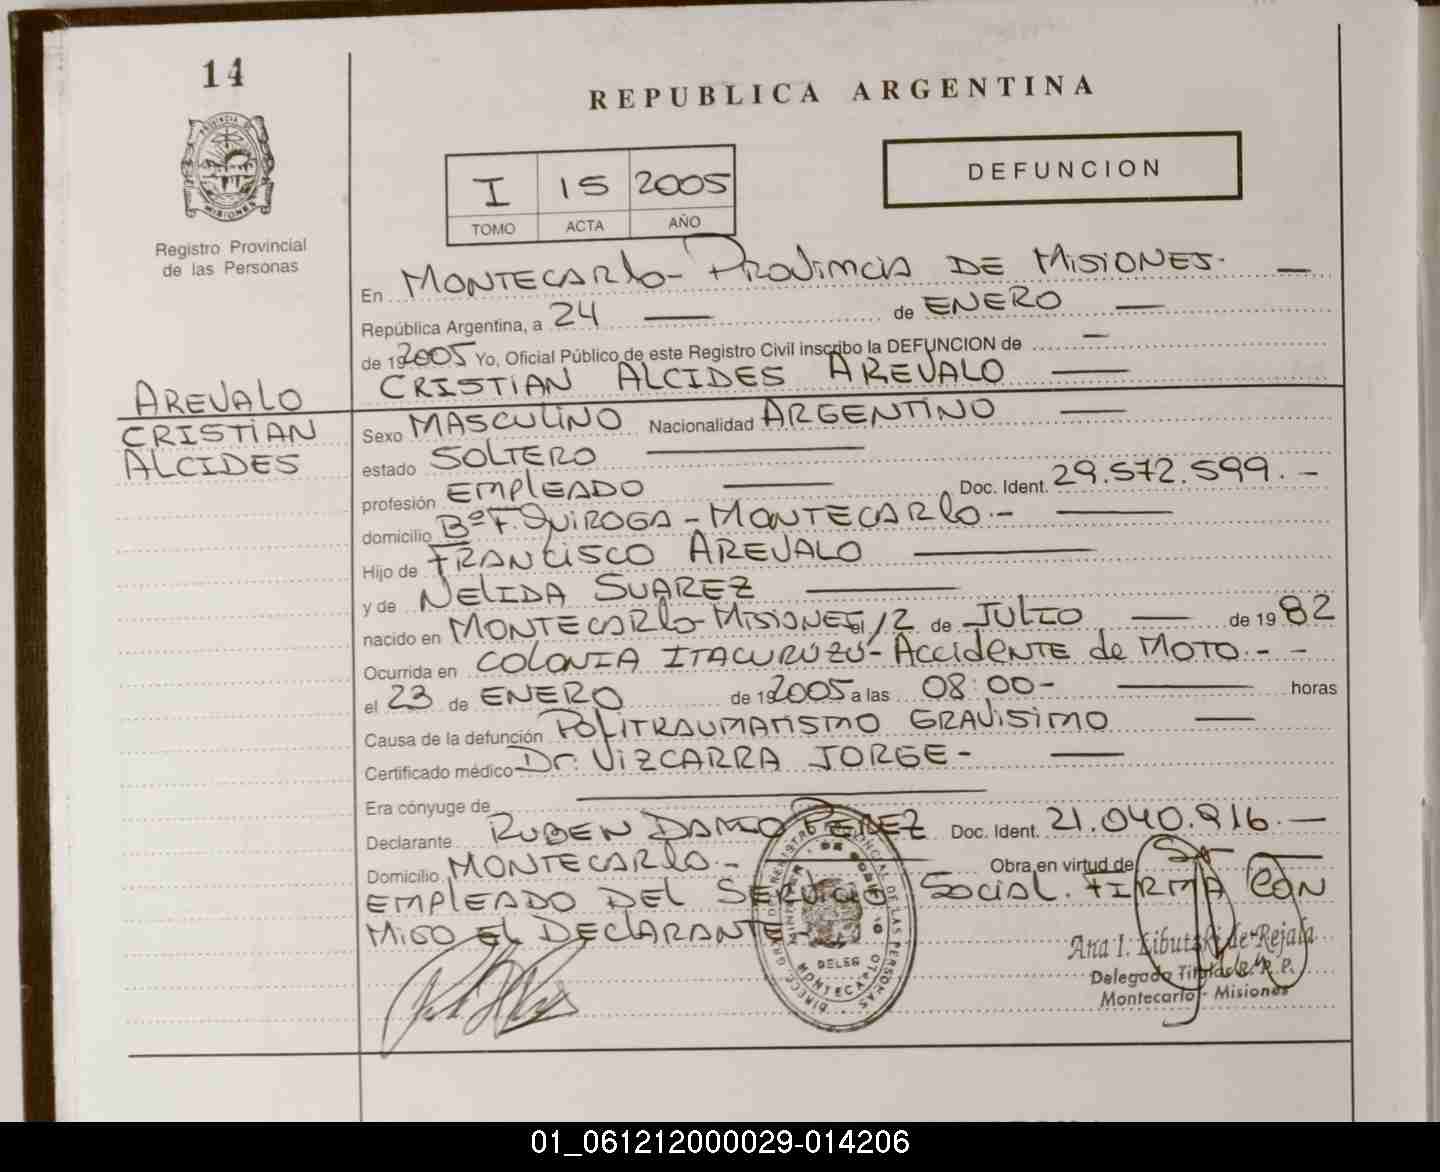 14
REPUBLICA ARGENTINA
DEFUNCION
I 15 2005
TOMO ACTA AÑO
PROVINCIA DE MISIONES
Registro Provincial
de las Personas
En MONTECARLO - PROVINCIA DE MISIONES.
República Argentina, a 24 de ENERO
de 19 2005 Yo, Oficial Público de este Registro Civil inscribo la DEFUNCION de
CRISTIAN ALCIDES AREVALO
AREVALO
CRISTIAN
ALCIDES
Sexo MASCULINO Nacionalidad ARGENTINO
estado SOLTERO
profesión EMPLEADO Doc. Ident. 29.572.599. -
domicilio Bº F. QUIROGA - MONTECARLO. -
Hijo de FRANCISCO AREVALO
y de NELIDA SUAREZ
nacido en MONTECARLO - MISIONES el 12 de JULIO de 19 82
Ocurrida en COLONIA ITACURUZU - ACCIDENTE de MOTO. - -
el 23 de ENERO de 19 2005 a las 08:00 - horas
Causa de la defunción POLITRAUMATISMO GRAVISIMO
Certificado médico Dr. VIZCARRA JORGE -
Era cónyuge de
Declarante RUBEN DARIO PEREZ Doc. Ident. 21.040.916. -
Domicilio MONTECARLO. - Obra en virtud de Sr
EMPLEADO DEL SERVICIO SOCIAL. FIRMA CON
MIGO EL DECLARANTE
DELEG
MONTECARLO
Ana I. Zibutzki de Rejala
Delegada Titular R. P.
Montecarlo - Misiones
01_061212000029-014206